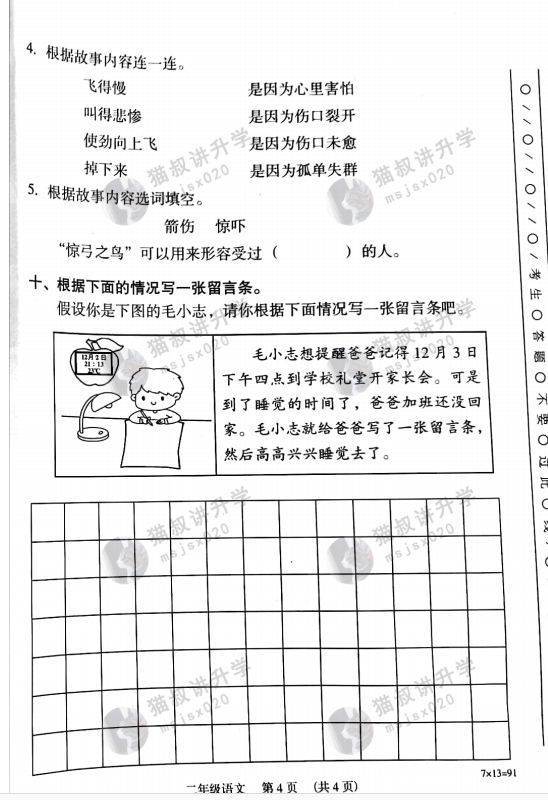 4. 根据故事内容连一连。
飞得慢 是因为心里害怕
叫得悲惨 是因为伤口裂开
使劲向上飞 是因为伤口未愈
掉下来 是因为孤单失群
5. 根据故事内容选词填空。
箭伤 惊吓
“惊弓之鸟”可以用来形容受过（ ）的人。
十、根据下面的情况写一张留言条。
假设你是下图的毛小志，请你根据下面情况写一张留言条吧。
12月2日
21:13
23℃
毛小志想提醒爸爸记得 12 月 3 日
下午四点到学校礼堂开家长会。可是
到了睡觉的时间了，爸爸加班还没回
家。毛小志就给爸爸写了一张留言条，
然后高高兴兴睡觉去了。
7×13=91
二年级语文 第 4 页 (共 4 页)
考生答题不要过此线
猫叔讲升学
msjsx020
猫叔讲升学
msjsx020
猫叔讲升学
msjsx020
猫叔讲升学
msjsx020
猫叔讲升学
msjsx020
猫叔讲升学
msjsx020
猫叔讲升学
msjsx020
猫叔讲升学
msjsx020